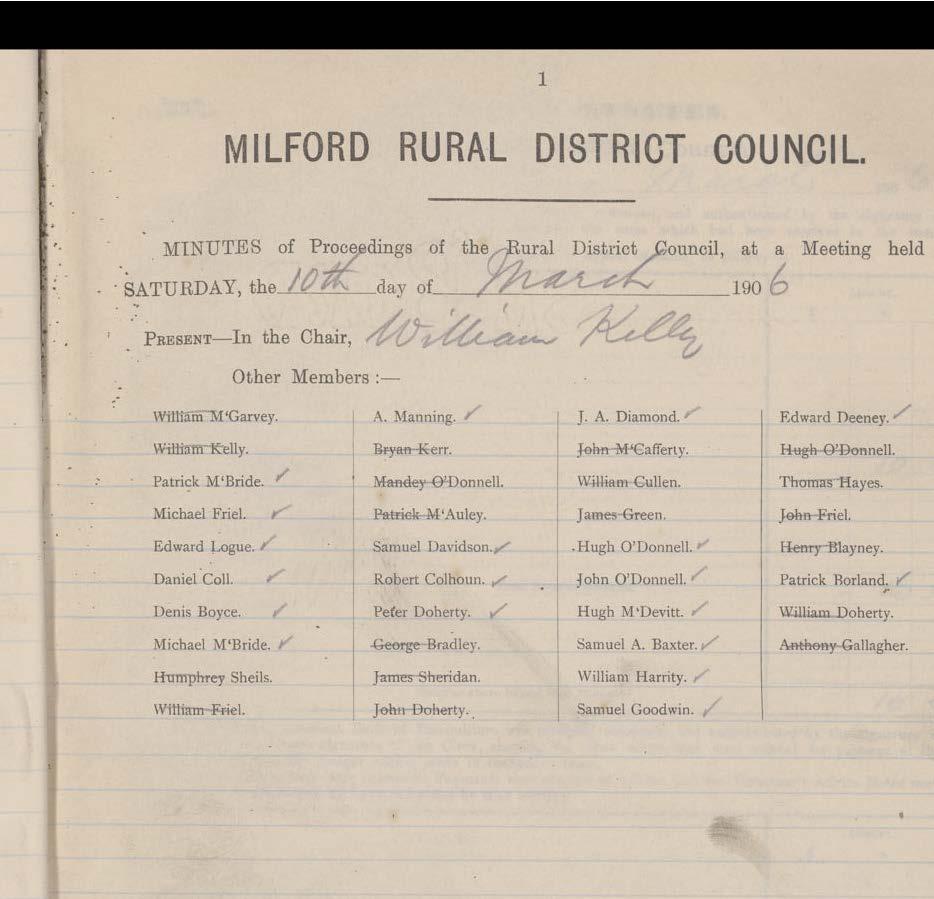 1
MILFORD RURAL DISTRICT COUNCIL.
MINUTES of Proceedings of the Rural District Council, at a Meeting held
SATURDAY, the 10th day of March 1906
PRESENT—In the Chair, William Kelly
Other Members :—
William M‘Garvey. A. Manning. ✓ J. A. Diamond. ✓ Edward Deeney. ✓
William Kelly. Bryan Kerr. John M‘Cafferty. Hugh O’Donnell.
Patrick M‘Bride. ✓ Mandey O’Donnell. William Cullen. Thomas Hayes.
Michael Friel. ✓ Patrick M‘Auley. James Green. John Friel.
Edward Logue. ✓ Samuel Davidson. ✓ Hugh O’Donnell. ✓ Henry Blayney.
Daniel Coll. ✓ Robert Colhoun. ✓ John O’Donnell. ✓ Patrick Borland. ✓
Denis Boyce. ✓ Peter Doherty. ✓ Hugh M‘Devitt. ✓ William Doherty.
Michael M‘Bride. ✓ George Bradley. Samuel A. Baxter. ✓ Anthony Gallagher.
Humphrey Sheils. James Sheridan. William Harrity. ✓
William Friel. John Doherty. Samuel Goodwin. ✓